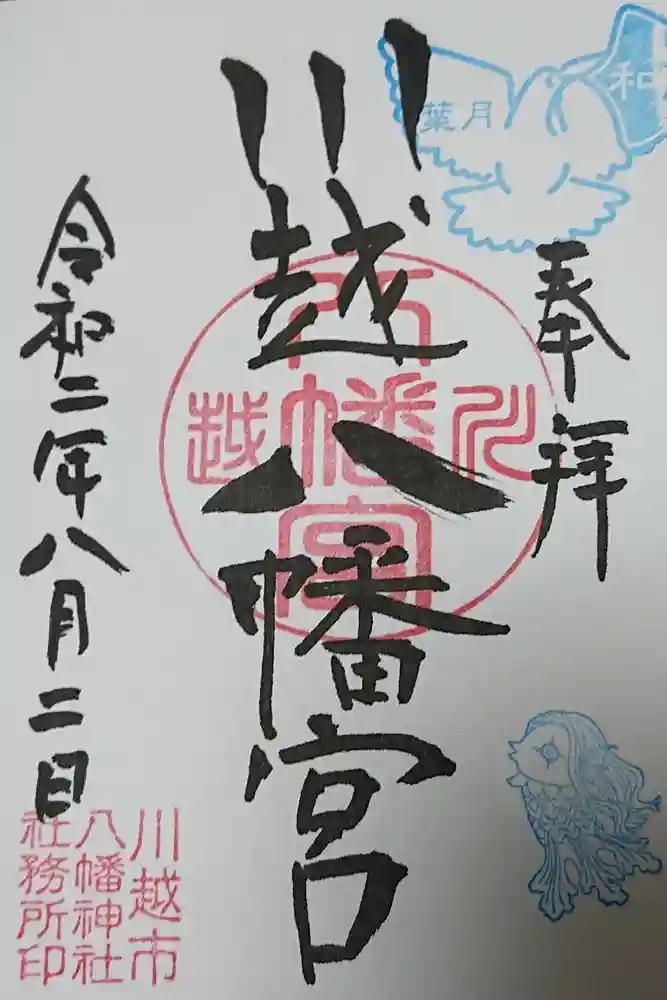 葉月
和
奉拝
川越八幡宮
川越
八幡宮
令和二年八月二日
川越市
八幡神社
社務所印